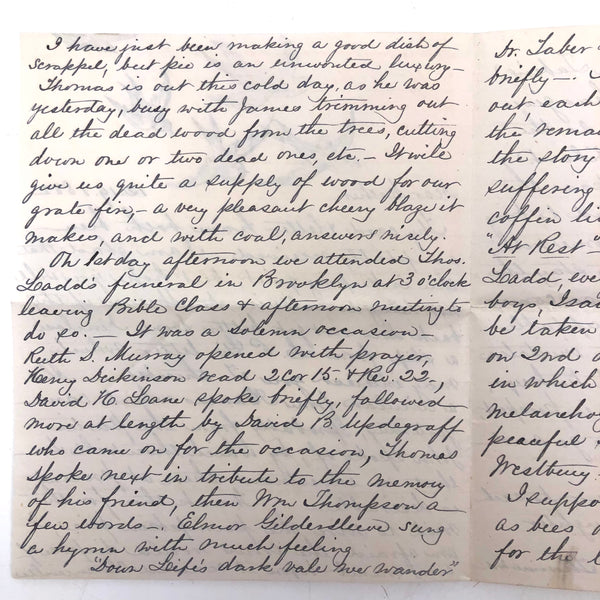 I have just been making a good dish of
scrappel, but pie is an unwonted luxury—
Thomas is out this cold day, as he was
yesterday, busy with James trimming out
all the dead wood from the trees, cutting
down one or two dead ones, etc.— It will
give us quite a supply of wood for our
grate fire,— a very pleasant cheery blaze it
makes, and with coal, answers nicely.
On 1st day afternoon we attended Thos.
Ladd's funeral in Brooklyn at 3 o'clock
leaving Bible Class & afternoon meeting to
do so.— It was a solemn occasion—
Ruth S. Murray opened with prayer,
Henry Dickinson read 2 Cor 15— & Rev. 22—,
David H. Lane spoke briefly, followed
more at length by David B Updegraff
who came on for the occasion, Thomas
spoke next in tribute to the memory
of his friend, then Wm Thompson a
few words—. Elmor Gildersleeve sung
a hymn with much feeling
"Down Life's dark vale we wander"
Dr. Taber
briefly—
out each
the remai
the story
suffering
coffin li
"At Rest"
Ladd, eve
boys, Isaa
be taken
on 2nd
in which
melancho
peaceful
Westbury—
I suppo
as bees
for the